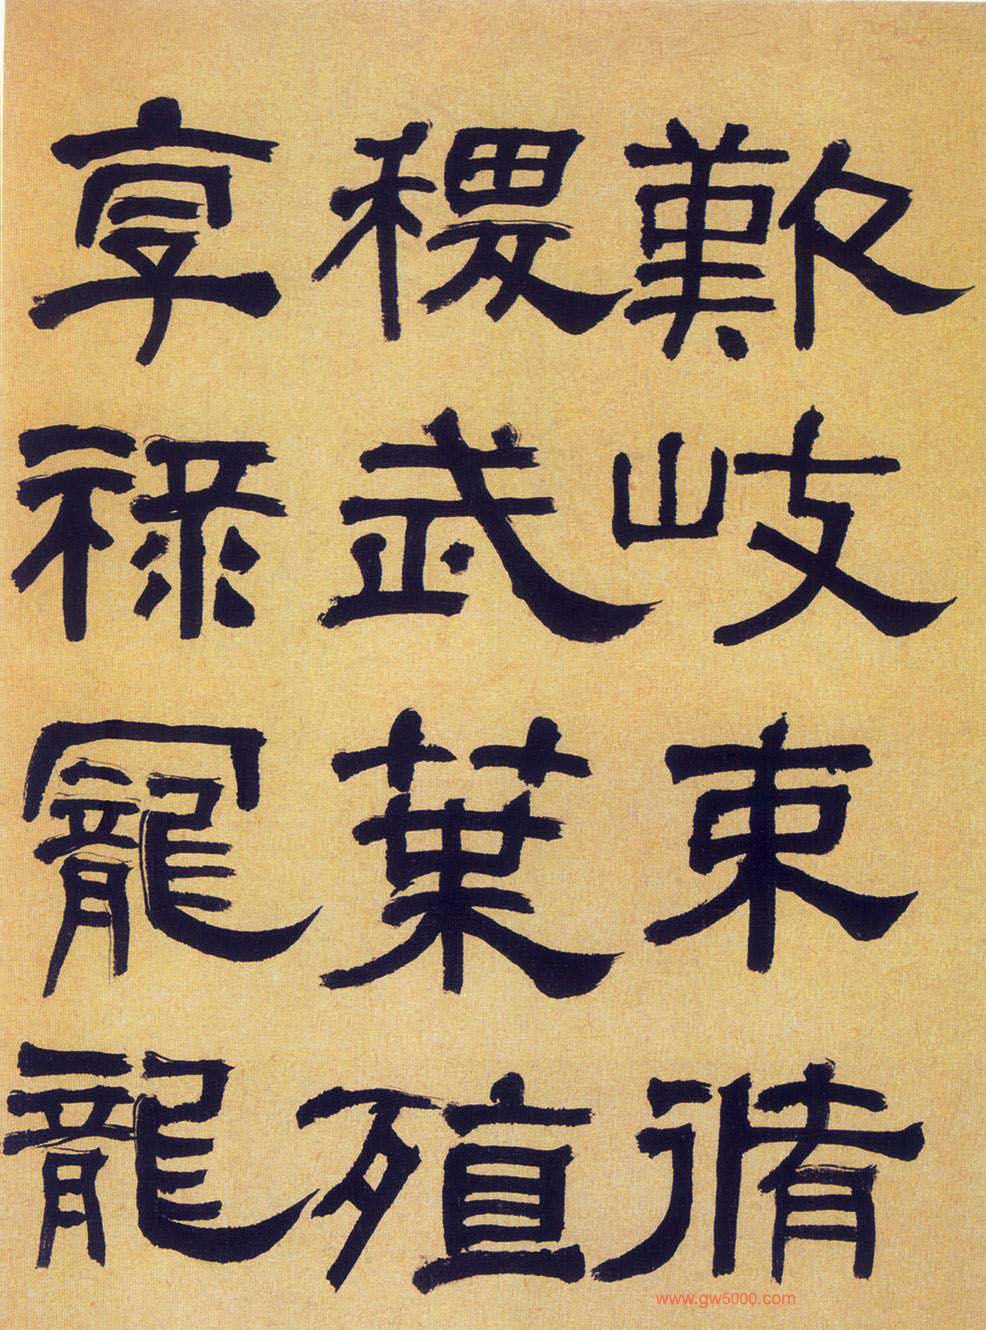 歎岐束脩
稷武葉殖
享祿寵龍
www.gw5000.com